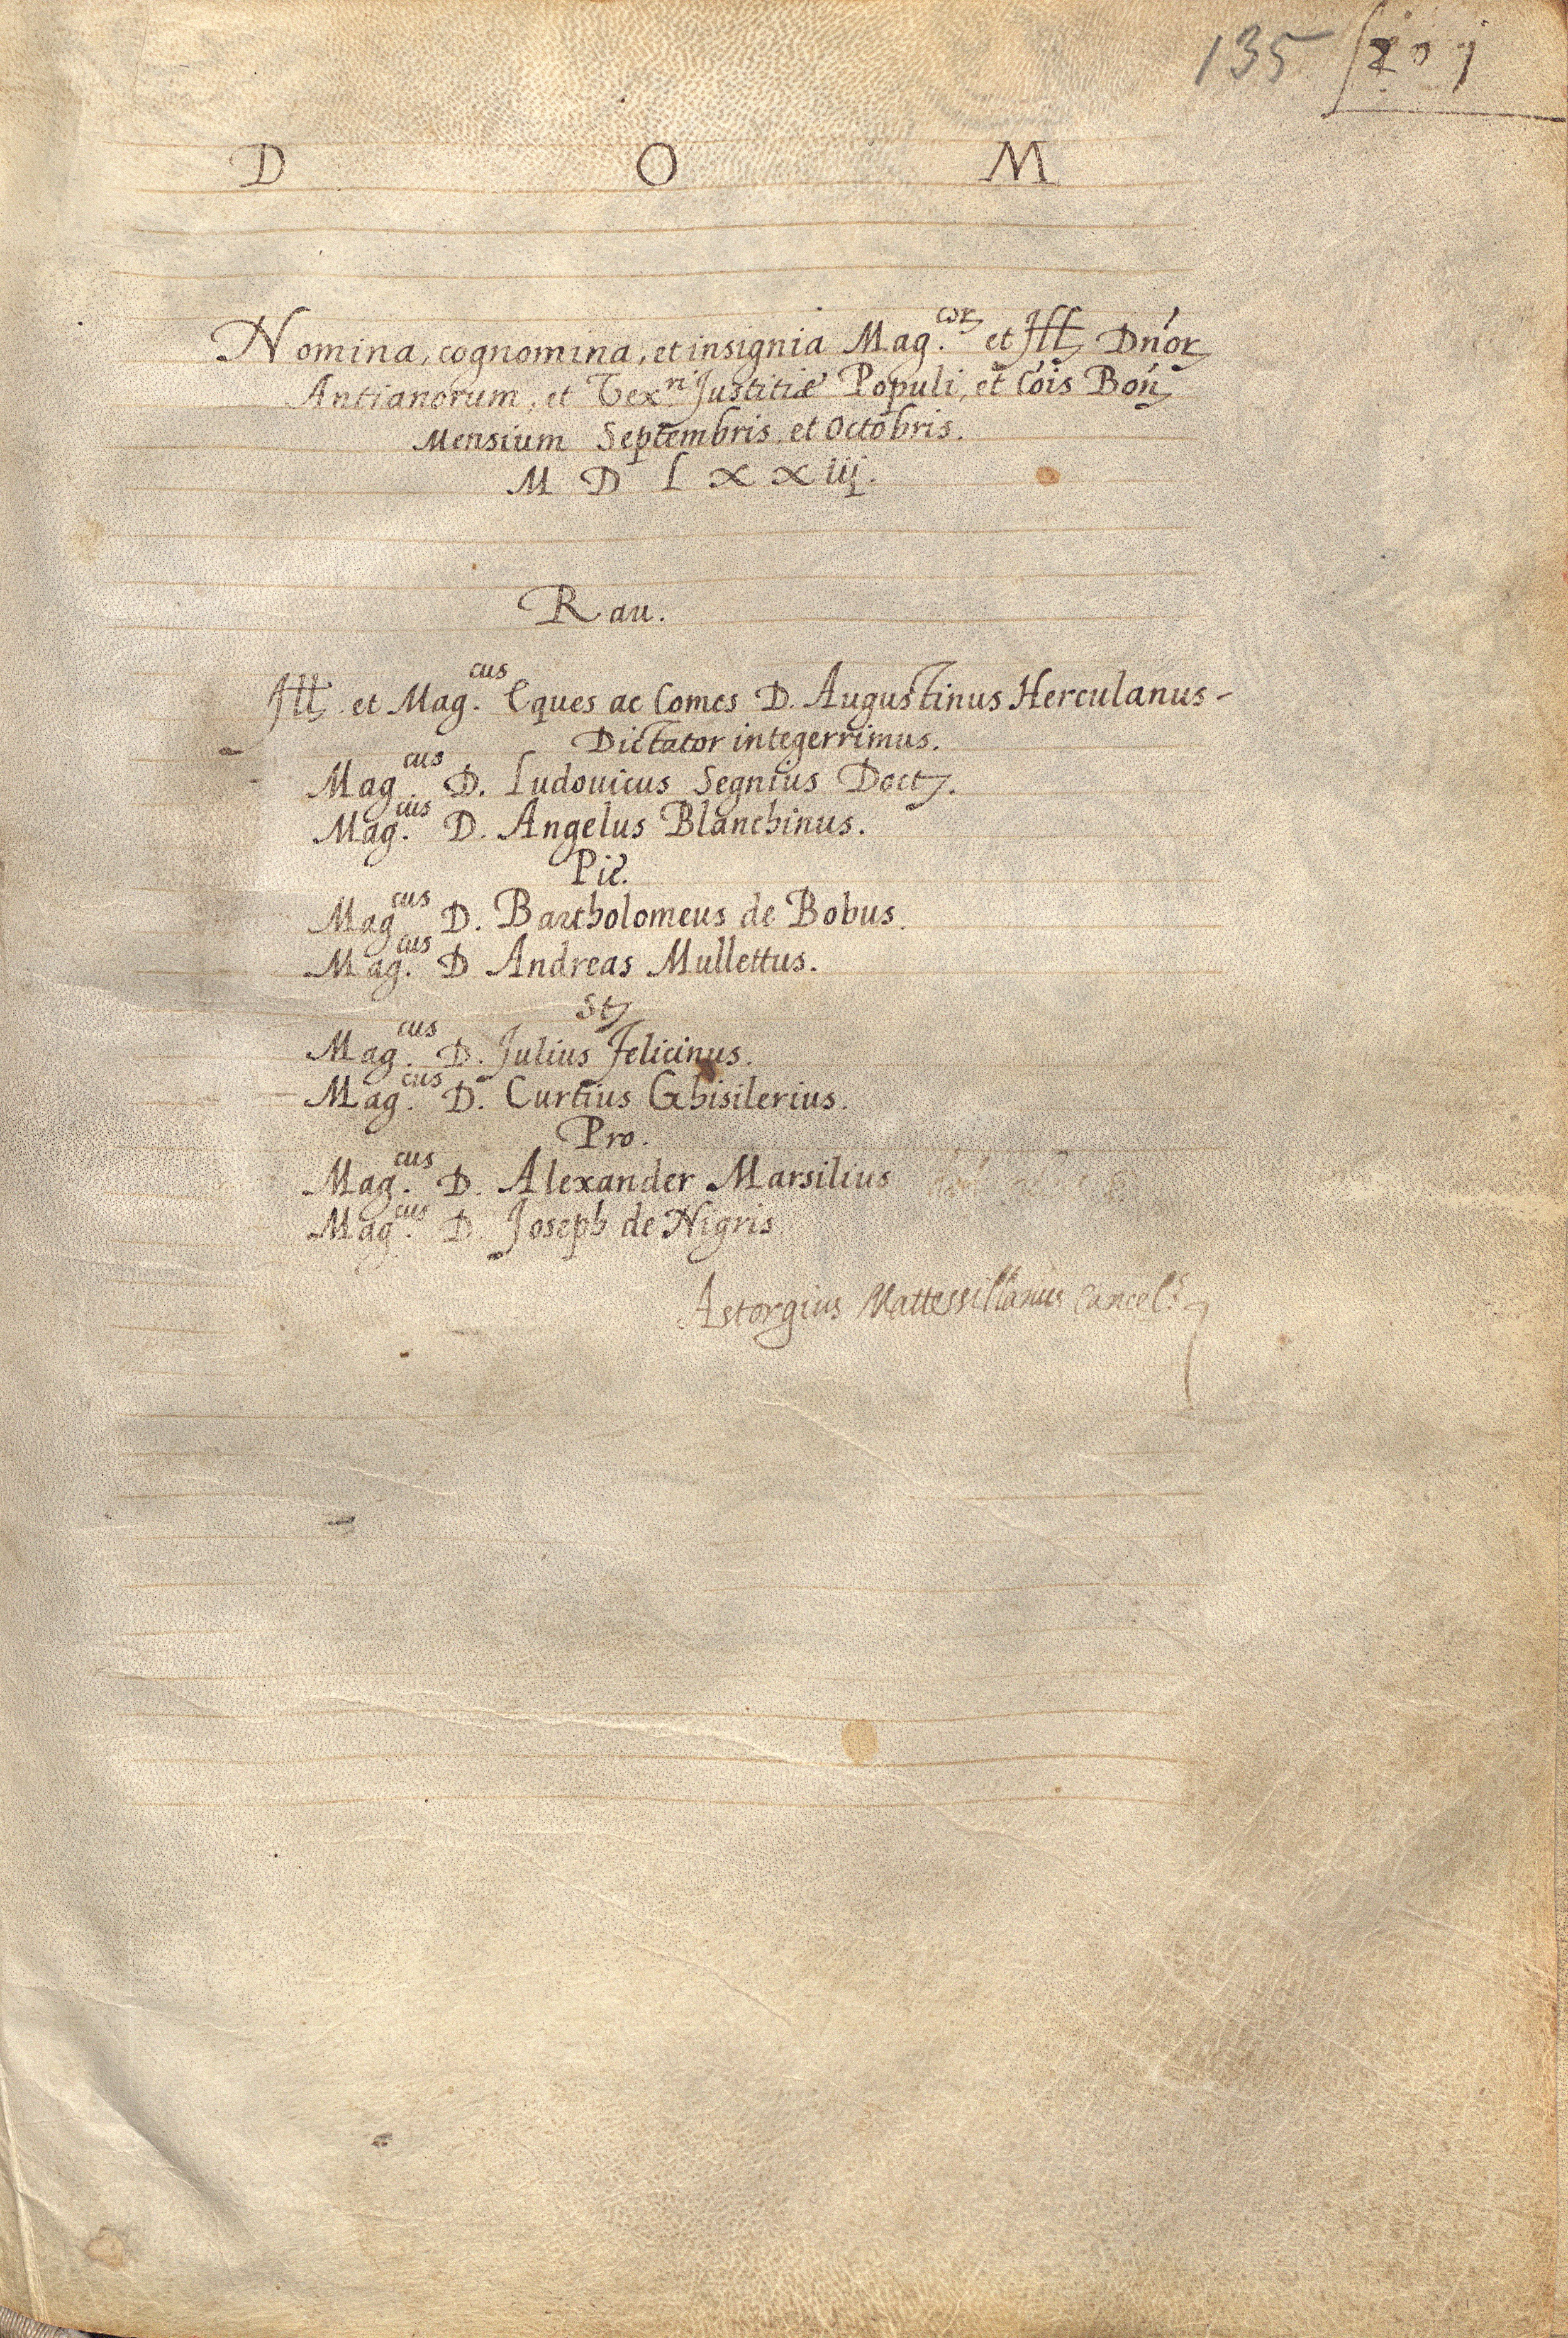 135
D O M
Nomina, cognomina, et insignia Mag.cor et Ill Dn'or
Antianorum, et Vex.ri Justitiæ Populi, et Co'is Bon'
Mensium Septembris, et Octobris.
M D L X X iij.
Rau.
Ill et Mag.cus Eques ac Comes D. Augustinus Herculanus-
Dictator integerrimus.
Mag.cus D. Ludouicus Segnius Doct.
Mag.cus D. Angelus Blanchinus.
Pie.
Mag.cus D. Bartholomeus de Bobus.
Mag.cus D Andreas Mullettus.
St
Mag.cus D. Julius Felicinus.
Mag.cus D. Curtius Ghisilerius.
Pro.
Mag.cus D. Alexander Marsilius
Mag.cus D. Joseph de Nigris
Astorgius Mattessillanus Cancel.s